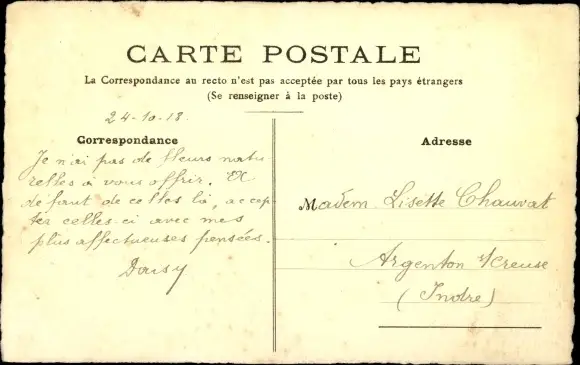 CARTE POSTALE
La Correspondance au recto n'est pas acceptée par tous les pays étrangers
(Se renseigner à la poste)
24-10-18.
Correspondance
Je n'ai pas de fleurs natu-
relles à vous offrir. A
defaut de celles là, accep-
ter celles-ci avec mes
plus affectueuses pensées.
Daisy
Adresse
Madem. Lisette Chauvat
Argenton s/Creuse
(Indre)